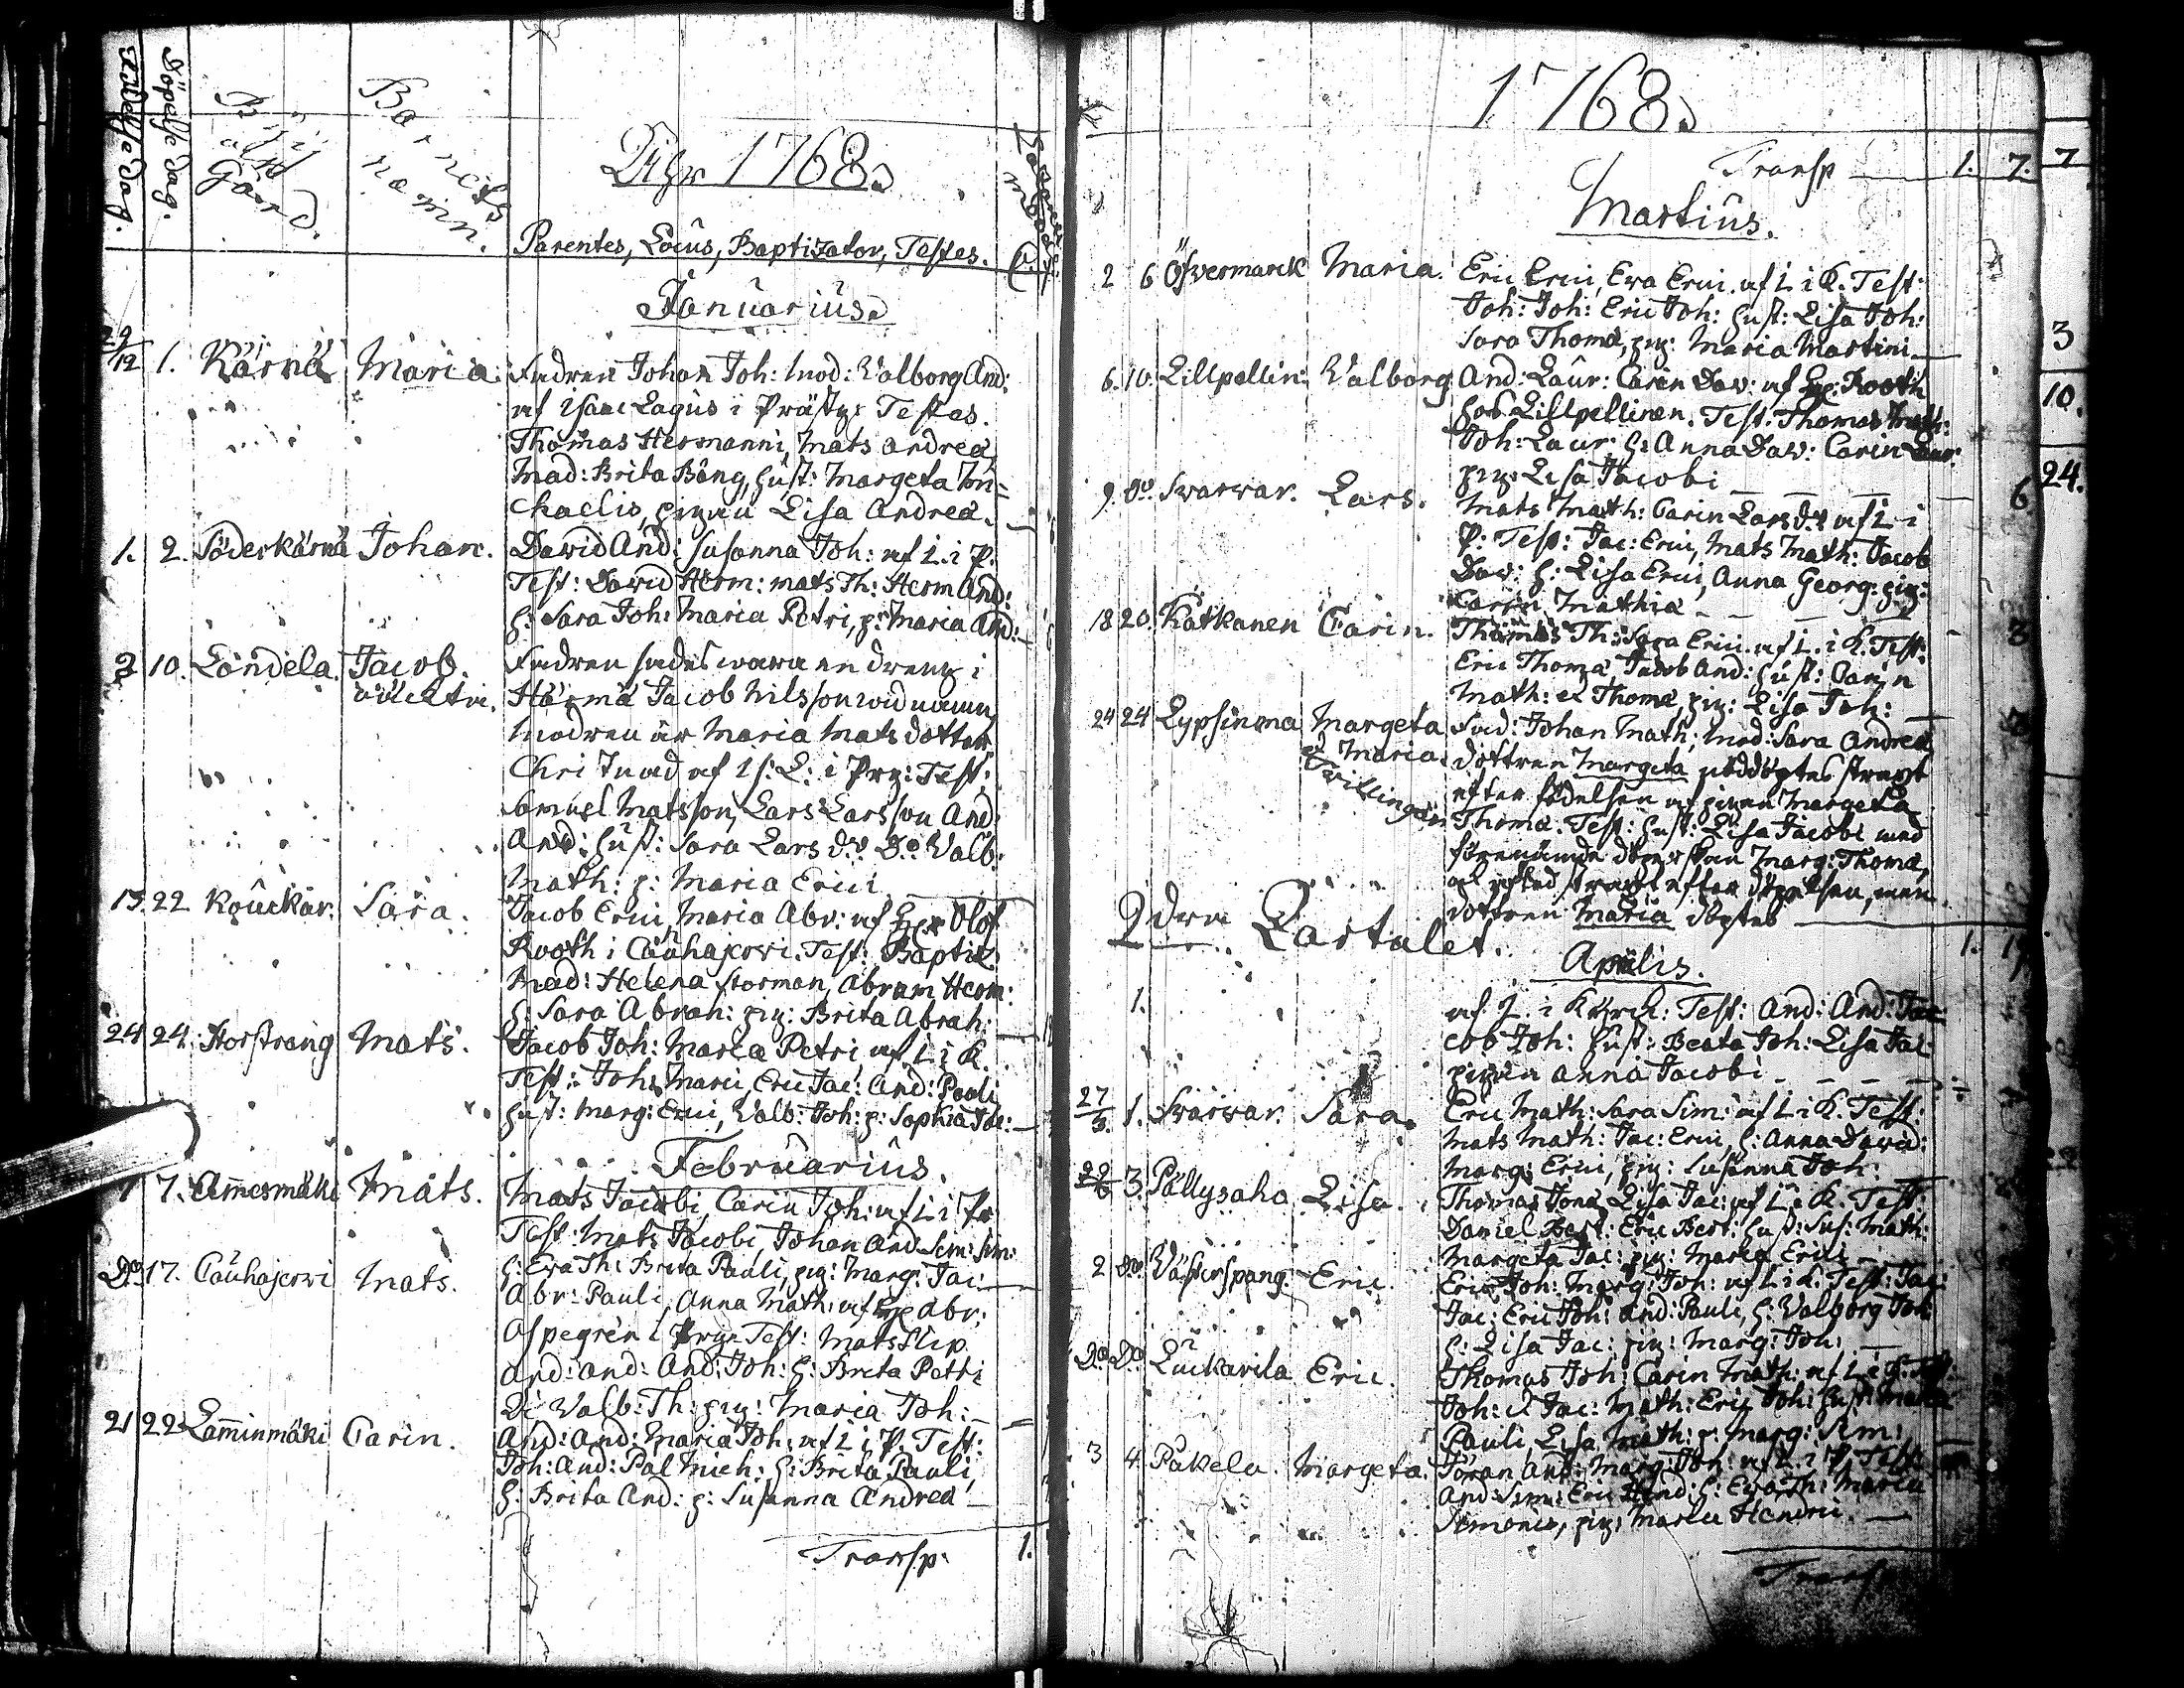 Födelse dag.
Döpelse dag.
By
och
Gård.
Barnets
namn.
Åhr 1768.
Parentes, Locus, Baptizator, Testes.
Januarius.
29/12 1. Kärnä Maria. Fadren Johan Joh: mod: Walborg And:
af Isaac Lagus i Prästg: Testes.
Thomas Hermanni, Mats Andreæ,
Mad: Brita Bång, hust: Margeta Mi=
chaelis, pigan Lisa Andreæ.
1. 2. Söderkärnä Johan. David And: Susanna Joh: af L. i P.
Test: David Herm: Mats Th: Herm And:
h: Sara Joh: Maria Petri, p: Maria And:
3 10. Londela. Jacob. Fadren sades wara en dreng i
oäckta. Härmä Jacob Nilsson wid namn
Modren är Maria Mats dotter
Christnad af Is: L: i Prg: Test:
Samuel Matsson, Lars Larsson And:
And: hust: Sara Lars dr Do Walb:
Math: p: Maria Erici
15. 22 Kouckar. Sara. Jacob Erici, Maria Abr: af Hr Olof
Rooth i Cauhajervi. Test: Baptiz:
Mad: Helena Storman, Abram Herm:
h: Sara Abrah: pig: Brita Abrah:
24 24. Storstrang Mats. Jacob Joh: Maria Petri af L i K.
Test: Joh: Marci, Eric Jac: And: Pauli
hust: Marg: Erici, Walb: Joh: p: Sophia Joh:
Februarius.
1 7. Ammesmäki Mats. Mats Jacobi, Carin Joh: af L i Pr
Test: Mats Jacobi, Johan And: Sim: Sim:
h: Eva Th: Brita Pauli, pig: Marg: Jac:
Do 17. Cauhajervi Mats. Abr: Pauli, Anna Math: af Hr Abr:
Aspegrén i Prg: Test: Mats Slip.
And: And: And: Joh: h: Brita Petri
Di Walb: Th: pig: Maria Joh:
21 22 Lamminmäki Carin. And: And: Maria Joh: af L i P. Test:
Joh: And: Pål Mich: h: Brita Pauli,
h: Brita And: p: Susanna Andreæ
Transp: 1.
1768.
Transp 1. 7. 7
Martius.
2 6 Öfvermarck Maria. Eric Erici, Eva Erici. af L i K. Test:
Joh: Joh: Eric Joh: hust: Lisa Joh:
Sara Thomæ, pig: Maria Martini
3
6. 10. Lillpellin: Walborg And: Laur: Carin Dav: af Hr: Rooth
10.
hos Lillpellinen. Test: Thomas Math:
Joh: Laur: h: Anna Dav: Carin Laur:
pig: Lisa Jacobi
24.
9. do. Svarvar. Lars. Mats Math: Carin Lars dr af L i 6
P: Test: Jac: Erici, Mats Math: Jacob
Dav: h: Lisa Erici, Anna Georg: pig:
Carin Mathiæ
18 20. Katkanen Carin. Thomas Th: Sara Erici af L. i K. Test:
Eric Thomæ, Jacob And: hust: Carin
Math: et Thomæ, pig: Lisa Joh:
24 24 Lypsinma Margeta Fad: Johan Math: mod: Sara Andreæ
& Maria. Dottren Margeta nöddöptes straxt
Tvillingar efter födelsen af pigan Margeta
Thomæ. Test: hust: Lisa Jacobi med
förenämde döperskan Marg: Thomæ,
straxt efter döpelsen, men
dottren Maria döptes
2dra Qartalet.
Aprilis.
1. af L. i Kyrck: Test: And: And: Ja=
cob Joh: hust: Beata Joh: Lisa Jac:
pigan Anna Jacobi
27/3. 1. Svarvar. Sara. Eric Math: Sara Sim: af L i K. Test:
Mats Math: Jac: Erici, h: Anna David:
Marg: Erici, pig: Susanna Joh:
3. Pällysaho Lisa. Thomas Jonæ, Lisa Jac: af L i K. Test:
Daniel Bert: Eric Bert: hust: Sus: Math:
Margeta Jac: pig: Maria Erici
2 do. Västerspang Eric. Eric Joh: Marg: Joh: af L i K. Test: Jac:
Jac: Eric Joh: And: Pauli, h: Walborg Joh:
h: Lisa Jac: pig: Marg: Joh:
Do Do Luckarila Eric. Thomas Joh: Carin Math: af L
Joh: & Jac: Math: Eric Joh: hust: Maria
Pauli, Lisa Math: p: Marg: Sim:
3 4. Pakela. Margeta. Jöran And: Marg: Joh: af L. i P. Test:
And: Sim: Eric Hend: h: Eva Th: Maria
Simonis, pig: Maria Hendrici.
Transp